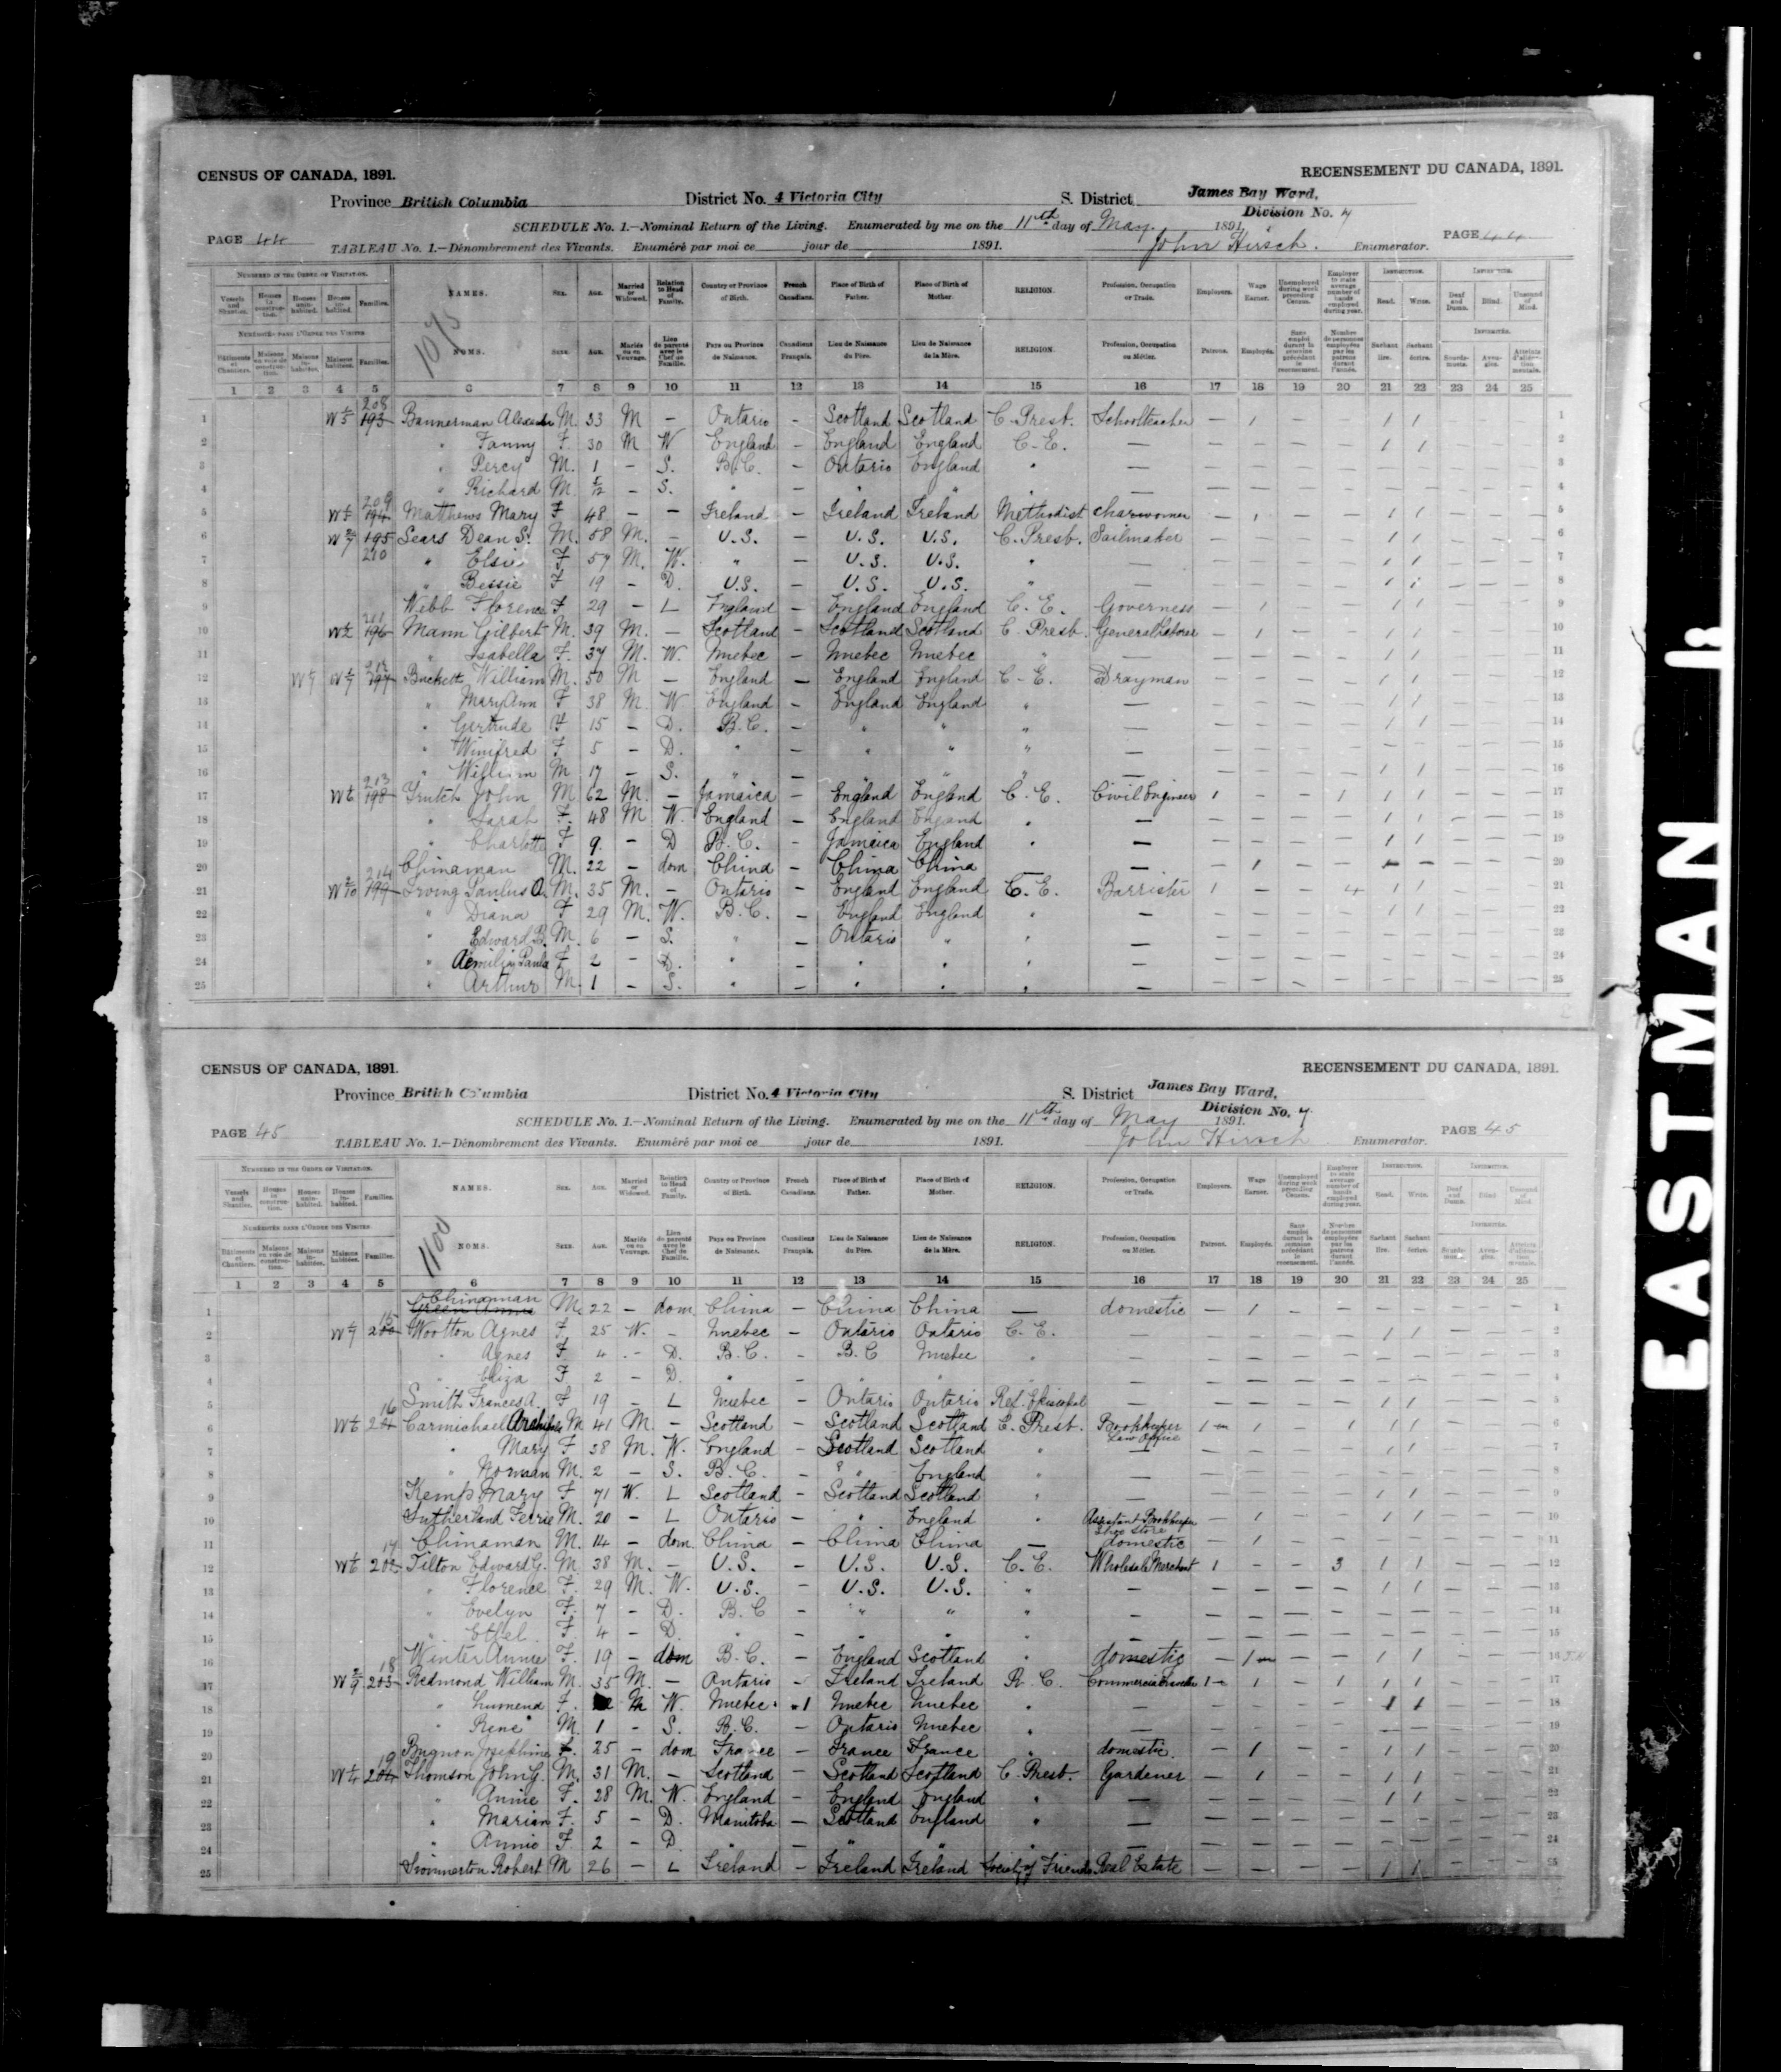 CENSUS OF CANADA, 1891. RECENSEMENT DU CANADA, 1891.
Province British Columbia District No. 4 Victoria City S. District James Bay Ward, Division No. 7
SCHEDULE No. 1.—Nominal Return of the Living. Enumerated by me on the 11th day of May 1891,
PAGE 44 TABLEAU No. 1.—Dénombrement des Vivants. Enuméré par moi ce jour de 1891. John Hirsch. Enumerator. PAGE 44
NUMBERED IN THE ORDER OF VISITATION.
Vessels and Shanties. Houses in construction. Houses uninhabited. Houses inhabited. Families. NAMES. Sex. Age. Married or Widowed. Relation to Head of Family. Country or Province of Birth. French Canadians. Place of Birth of Father. Place of Birth of Mother. RELIGION. Profession, Occupation or Trade. Employers. Wage Earner. Unemployed during week preceding Census. Employer to state average number of hands employed during year. Read. Write. Deaf and Dumb. Blind. Unsound of Mind.
1075
NOMS.
1 2 3 4 5 6 7 8 9 10 11 12 13 14 15 16 17 18 19 20 21 22 23 24 25
1 208 193 Bannerman Alexander M. 33 M — Ontario - Scotland Scotland C. Presb. Schoolteacher — 1 — — 1 1 — — — 1
2 " Fanny F. 30 M W England - England England C. E. — 1 1 2
3 " Percy M. 1 - S. B.C. - Ontario England " — 3
4 " Richard M. - S. " - " " " — 4
5 209 194 Matthews Mary F 48 — — Ireland - Ireland Ireland Methodist charwoman — 1 — — 1 1 5
6 195 Sears Dean S. M. 58 M. — U.S. - U.S. U.S. C. Presb. Sailmaker 1 1 6
7 210 " Elsie F 57 M. W. " — U.S. U.S. " — 1 1 7
8 " Bessie F 19 - D. U.S. - U.S. U.S. " — 1 1 8
9 Webb Florence F 29 - L England - England England C. E. Governess — 1 — — 1 1 9
10 211 196 Mann Gilbert M. 39 M. — Scotland - Scotland Scotland C. Presb. General Labourer — 1 — — 1 1 10
11 " Isabella F. 37 M. W. Quebec - Quebec Quebec " — 1 1 11
12 212 197 Buckett William M. 50 M — England - England England C. E. Drayman 1 1 12
13 " Mary Ann F 38 M. W England - England England " — 1 1 13
14 " Gertrude F 15 - D. B.C. - " " " — 1 1 14
15 " Winifred F 5 - D. " - " " " — 15
16 " William M 17 - S. " - " " " — 1 1 16
17 213 198 Trutch John M. 62 M. — Jamaica - England England C. E. Civil Engineer 1 — — 1 1 1 17
18 " Sarah F. 48 M W. England - England England " — 1 1 18
19 " Charlotte F 9. - D B.C. - Jamaica England " — 19
20 Chinaman M. 22 - dom China - China China — — 1 20
21 214 199 Irving Paulus Æ. M. 35 M. — Ontario - England England C. E. Barrister 1 — — 4 1 1 21
22 " Diana F 29 M. W. B.C. - England England " — 1 1 22
23 " Edward B. M. 6 - S. " - Ontario " " — 23
24 " Aemilia Paula F 2 - D. " - " " " — 24
25 " Arthur M. 1 - S. " - " " " — 25
CENSUS OF CANADA, 1891. RECENSEMENT DU CANADA, 1891.
Province British Columbia District No. 4 Victoria City S. District James Bay Ward, Division No. 7
SCHEDULE No. 1.—Nominal Return of the Living. Enumerated by me on the 11th day of May 1891.
PAGE 45 TABLEAU No. 1.—Dénombrement des Vivants. Enuméré par moi ce jour de 1891. John Hirsch Enumerator. PAGE 45
NUMBERED IN THE ORDER OF VISITATION.
NAMES.
1100
NOMS.
1 2 3 4 5 6 7 8 9 10 11 12 13 14 15 16 17 18 19 20 21 22 23 24 25
1 Chinaman M. 22 - dom China - China China — domestic — 1 1
2 15 200 Wootton Agnes F. 25 W. - Quebec - Ontario Ontario C. E. — 1 1 2
3 " Agnes F. 4 - D. B.C. - B.C Quebec " — 3
4 " Eliza F. 2 - D. " - " " " — 4
5 Smith Frances A. F 19 - L Quebec - Ontario Ontario Ref. Episcopal — 1 1 5
6 16 201 Carmichael M 41 M. — Scotland - Scotland Scotland C. Presb. Bookkeeper Law Office 1 1 1 1 1 6
7 " Mary F 38 M. W. England - Scotland Scotland " — 1 1 7
8 " Norman M. 2 - S. B.C. - " England " — 8
9 Kemp Mary F 71 W. L Scotland - Scotland Scotland " — 1 1 9
10 Sutherland Ferrie M. 20 - L Ontario - " England " Assistant Bookkeeper Shoe Store — 1 — — 1 1 10
11 Chinaman M. 14 - dom China - China China — domestic — 1 11
12 17 202 Tilton Edward G. M. 38 M. — U.S. - U.S. U.S. C. E. Wholesale Merchant 1 — — 3 1 1 12
13 " Florence F. 29 M. W. U.S. - U.S. U.S. " — 1 1 13
14 " Evelyn F. 7 - D. B.C - " " " — 14
15 " Ethel F. 4 - D " - " " " — 15
16 Winter Annie F. 19 - dom B.C. - England Scotland " domestic — 1 — — 1 1 16
17 18 203 Redmond William M. 35 M. — Ontario - Ireland Ireland R. C. Commercial Traveller 1 1 1 1 1 17
18 " F. M W. Quebec 1 Quebec Quebec " — 1 1 18
19 " Rene M. 1 - S. B.C. - Ontario Quebec " — 19
20 Bugnon Josephine F. 25 - dom France - France France " domestic. — 1 — — 1 1 20
21 19 204 Thomson John G. M. 31 M. — Scotland - Scotland Scotland C. Presb. Gardener — 1 — — 1 1 21
22 " Annie F. 28 M. W. England - England England " — 1 1 22
23 " Marian F. 5 - D. Manitoba - Scotland England " — 23
24 " Annie F 2 - D " - " " " — 24
25 Swinnerton Robert M 26 - L Ireland - Ireland Ireland Society of Friends Real Estate 1 1 25
EASTMAN